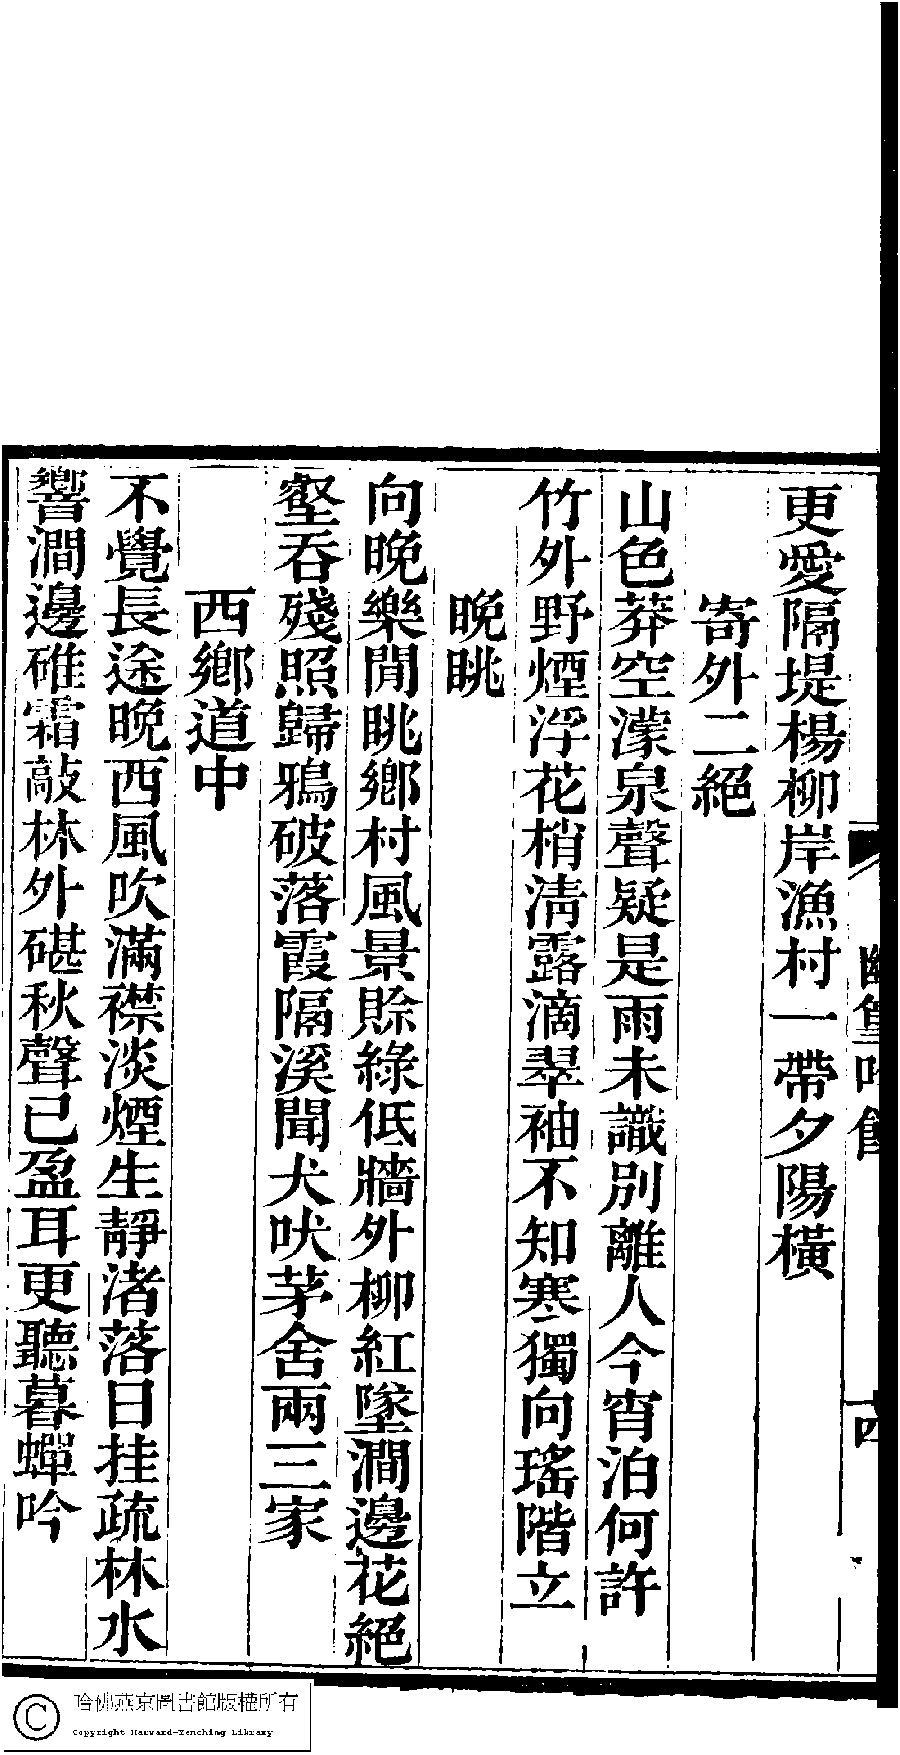 更愛隔堤楊柳岸漁村一帶夕陽橫
寄外二絕
山色莽空濛泉聲疑是雨未識別離人今宵泊何許
竹外野煙浮花梢清露滴翠袖不知寒獨向瑤階立
晚眺
向晚樂閒眺鄉村風景賒綠低牆外柳紅墜澗邊花絕
壑吞殘照歸鴉破落霞隔溪聞犬吠茅舍兩三家
西鄉道中
不覺長途晚西風吹滿襟淡煙生靜渚落日挂疏林水
響澗邊碓霜敲林外碪秋聲已盈耳更聽暮蟬吟
哈佛燕京圖書館版權所有
Copyright Harvard-Yenching Library